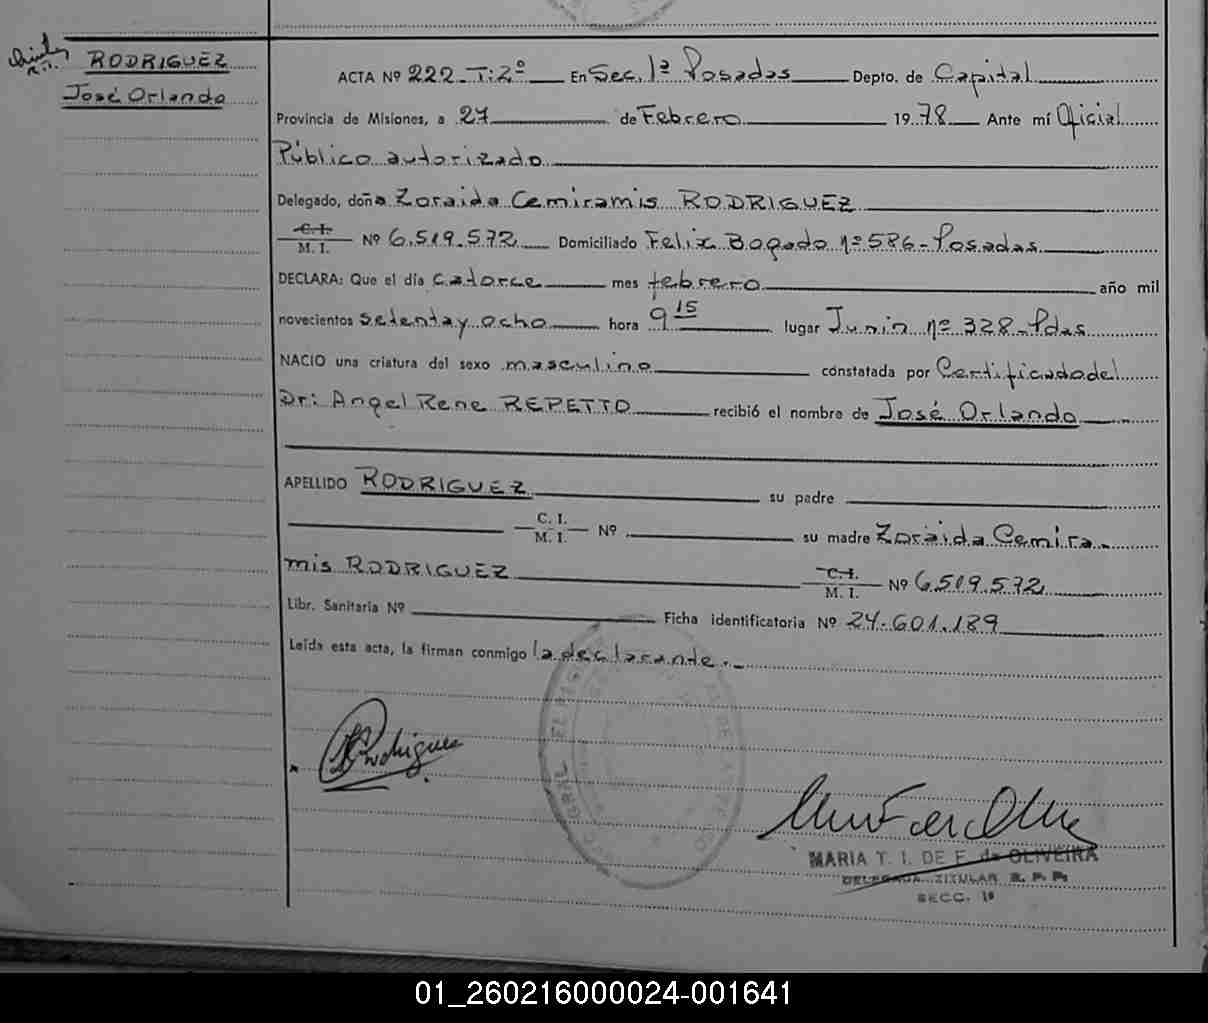 RODRIGUEZ
José Orlando
ACTA Nº 222-T:2º En Sec. 1ª Posadas Depto. de Capital
Provincia de Misiones, a 27 de Febrero 1978 Ante mí Oficial
Público autorizado
Delegado, doña Zoraida Cemiramis RODRIGUEZ
C.I. M.I. Nº 6.519.572 Domiciliado Felix Bogado nº 586-Posadas
DECLARA: Que el día catorce mes febrero año mil
novecientos setenta y ocho hora 9 15 lugar Junin nº 328-Pdas
NACIO una criatura del sexo masculino constatada por Certificado del
Dr: Angel Rene REPETTO recibió el nombre de José Orlando
APELLIDO RODRIGUEZ su padre
C. I. M. I. Nº su madre Zoraida Cemira-
mis RODRIGUEZ C.I. M. I. Nº 6.519.572
Libr. Sanitaria Nº Ficha identificatoria Nº 24.601.189
Leída esta acta, la firman conmigo la declarante.-
Rodriguez
MARIA T. I. DE F. de OLIVEIRA
DELEGADA TITULAR R. P. P.
SECC. 1ª
01_260216000024-001641